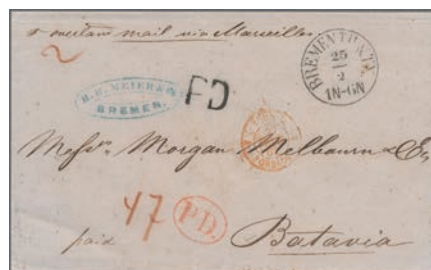 mail via Marseille
BREMEN TH.&TX.
25
2
1N-6N
H.H. MEIER & Co.
BREMEN.
PD
Messrs. Morgan Melbaurn & Co
47
P.D.
paid
Batavia